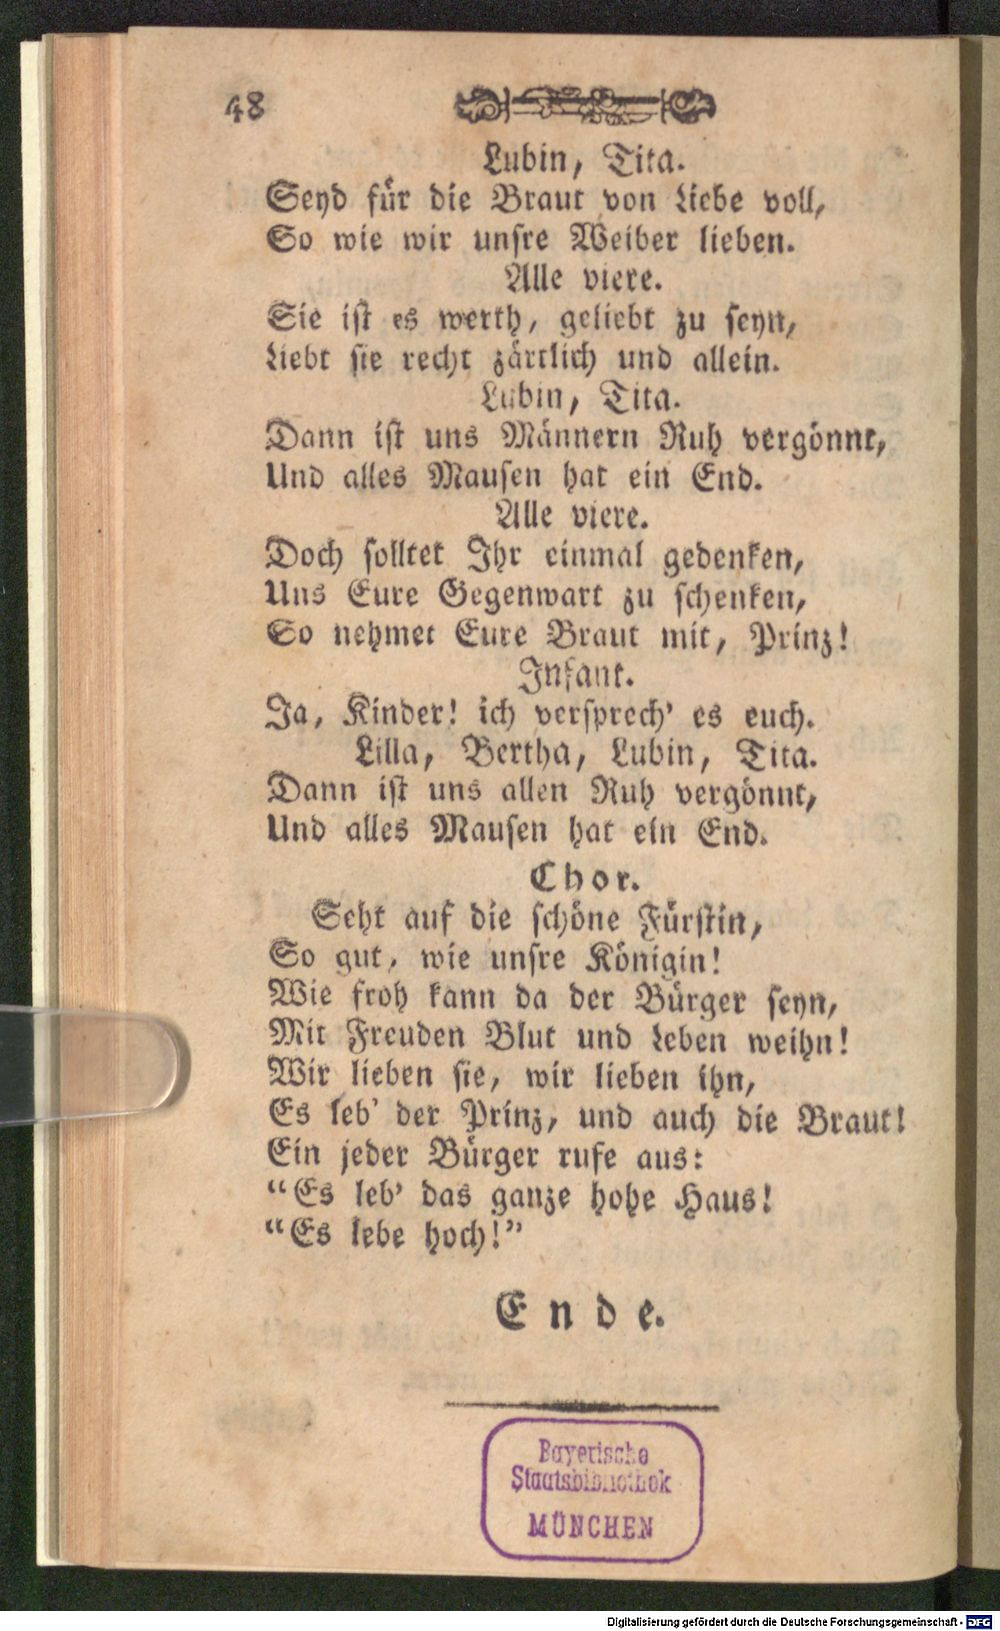 48
Lubin, Tita.
Seyd für die Braut von Liebe voll,
So wie wir unsre Weiber lieben.
Alle viere.
Sie ist es werth, geliebt zu seyn,
Liebt sie recht zärtlich und allein.
Lubin, Tita.
Dann ist uns Männern Ruh vergönnt,
Und alles Mausen hat ein End.
Alle viere.
Doch solltet Ihr einmal gedenken,
Uns Eure Gegenwart zu schenken,
So nehmet Eure Braut mit, Prinz!
Infant.
Ja, Kinder! ich versprech' es euch.
Lilla, Bertha, Lubin, Tita.
Dann ist uns allen Ruh vergönnt,
Und alles Mausen hat ein End.
Chor.
Seht auf die schöne Fürstin,
So gut, wie unsre Königin!
Wie froh kann da der Bürger seyn,
Mit Freuden Blut und Leben weihn!
Wir lieben sie, wir lieben ihn,
Es leb' der Prinz, und auch die Braut!
Ein jeder Bürger rufe aus:
“Es leb' das ganze hohe Haus!
“Es lebe hoch!”
Ende.
Bayerische
Staatsbibliothek
MÜNCHEN
Digitalisierung gefördert durch die Deutsche Forschungsgemeinschaft - DFG